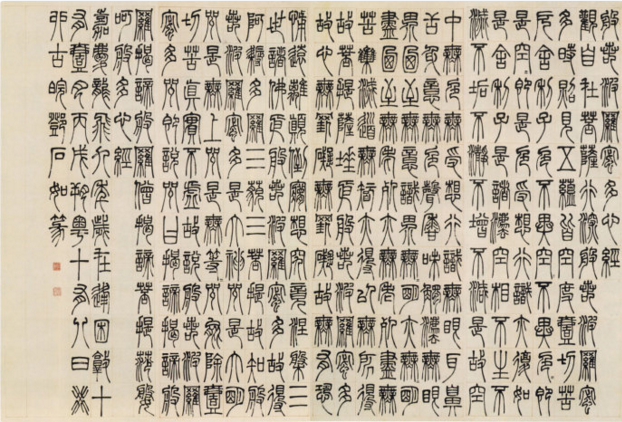 般若波羅密多心經
觀自在菩薩行深般若波羅密
多時照見五蘊皆空度壹切苦
厄舍利子色不異空〻不異色〻即
是空〻即是色受想行識亦復如
是舍利子是諸法空相不生不
滅不垢不淨不增不減是故空
中無色無受想行識無眼耳鼻
舌身意無色聲香味觸法無眼
界乃至無意識界無〻明亦無〻明
盡乃至無老死亦無老死盡無
苦集滅道無智亦得以無所得
故菩提薩埵依般若波羅密多
故心無罣礙無罣礙故無有恐
怖遠離顛倒夢想究竟涅槃三
世諸佛依般若波羅密多故得
阿耨多羅三藐三菩提故知般
若波羅密多是大神咒是大明
咒是無上咒是無等〻咒能除壹
切苦真實不虛故說般若波羅
密多咒即說咒曰揭諦揭諦般
羅揭諦般羅僧揭諦菩提薩婆
呵般多心經
嘉慶龍飛九年歲在逢困敦十
有壹月丙戌朔粵十有八日癸
卯古皖鄧石如篆